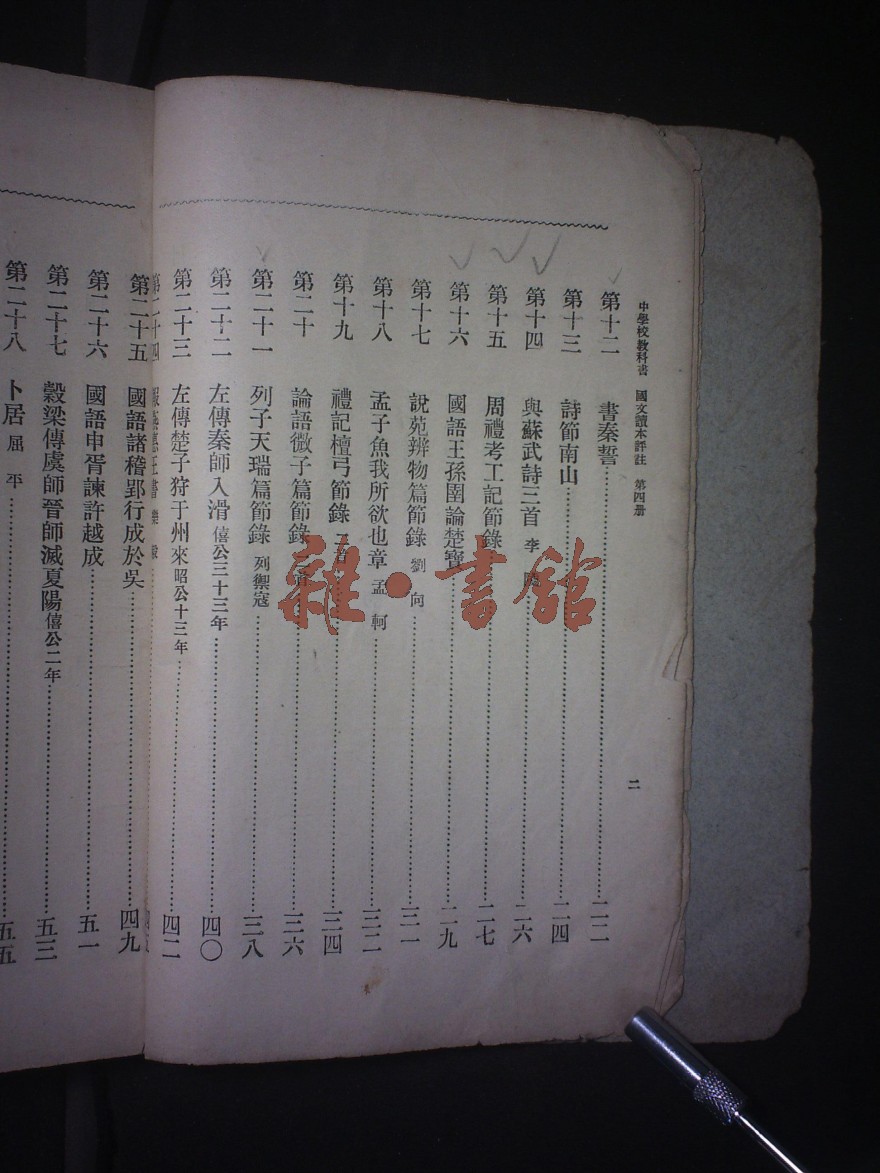 中學校教科書 國文讀本評註 第四册
二
第十二 書秦誓 二二
第十三 詩節南山 二四
第十四 與蘇武詩三首 李陵 二六
第十五 周禮考工記節錄 二七
第十六 國語王孫圉論楚寶 二九
第十七 說苑辨物篇節錄 劉向 三一
第十八 孟子魚我所欲也章 孟軻 三二
第十九 禮記檀弓節錄 三四
第二十 論語微子篇節錄 三六
第二十一 列子天瑞篇節錄 列禦寇 三八
第二十二 左傳秦師入滑 僖公三十三年 四〇
第二十三 左傳楚子狩于州來 昭公十三年 四二
第二十四
第二十五 國語諸稽郢行成於吳 四九
第二十六 國語申胥諫許越成 五一
第二十七 穀梁傳虞師晉師滅夏陽 僖公二年 五三
第二十八 卜居 屈平 五五
雜·書館